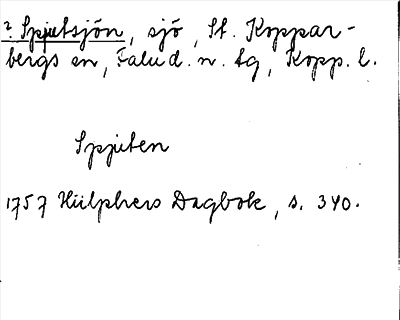 ? Spjutsjön, sjö, St. Koppar-
bergs sn, Falu d. n. tg, Kopp. l.
Spjuten
1757 Hülphers Dagbok, s. 340.